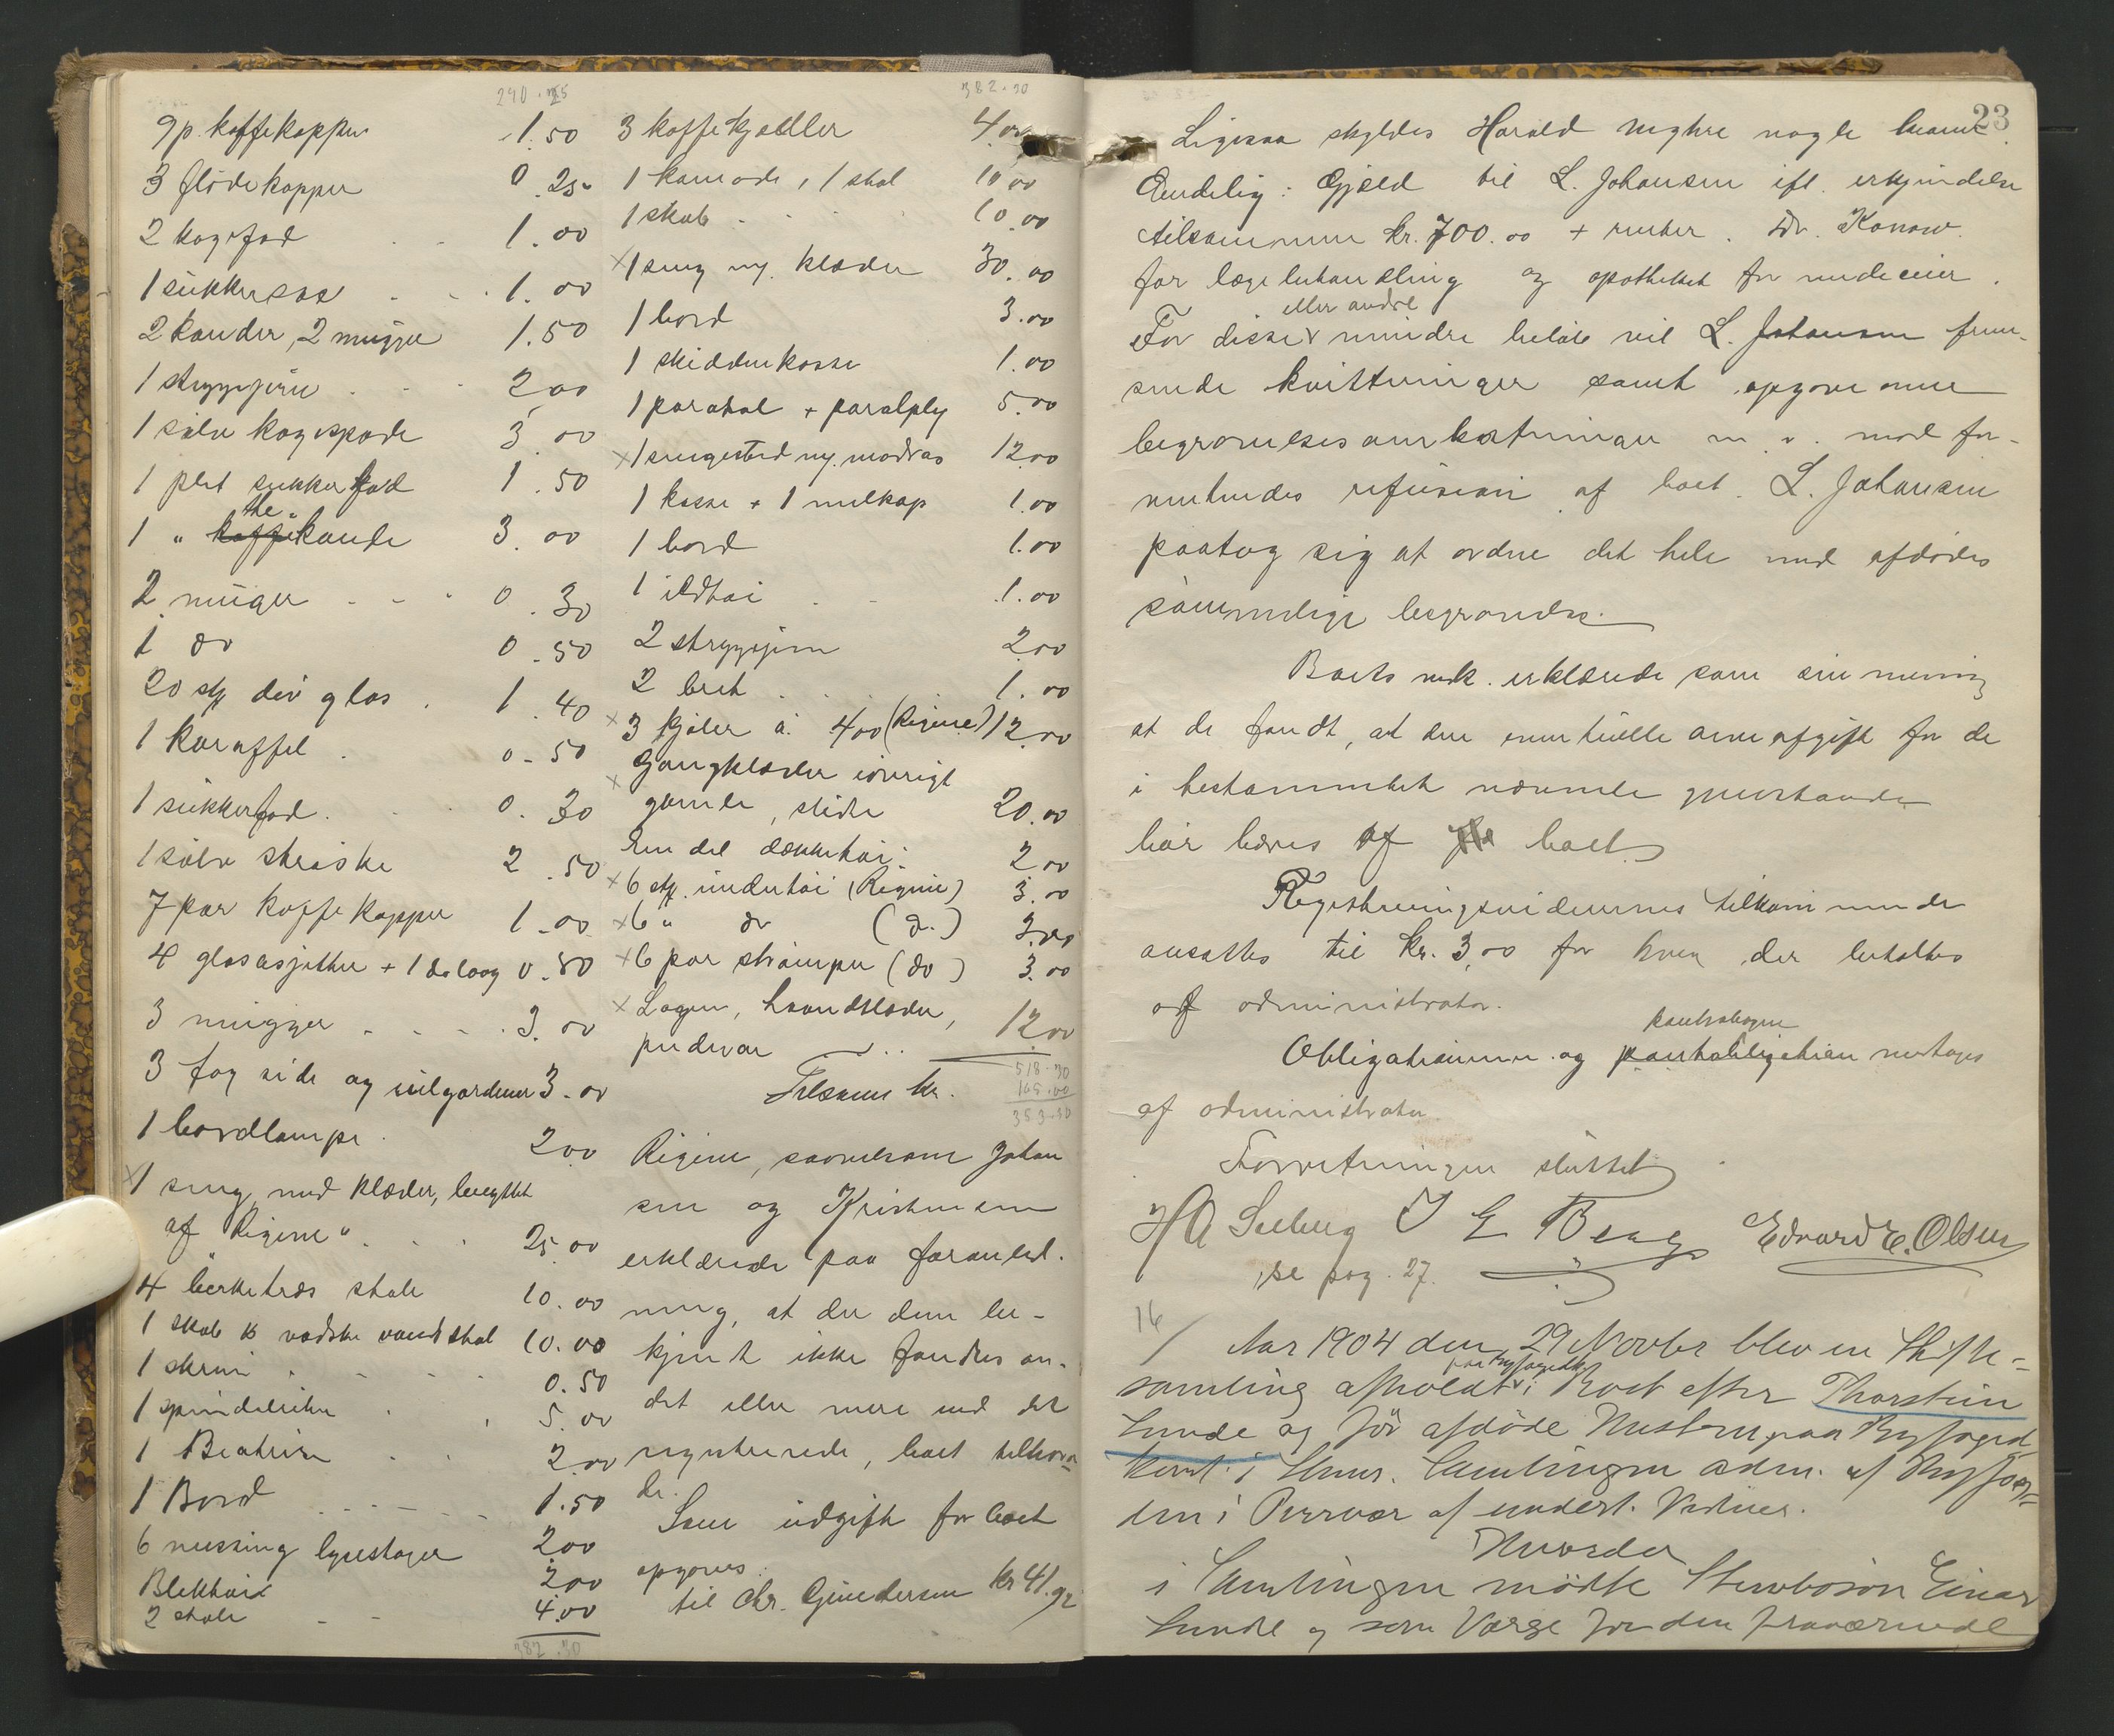 290.25
9 p. kaffekopper 1.50
3 flödekopper 0.25
2 kagefad 1.00
1 sukkersax 1.00
2 kander, 2 mugger 1.50
1 strygejern 2.00
1 sölv kagespade 3.00
1 plet sukkerfad 1.50
the
1 " kaffekande 3.00
2 mugger 0.30
1 do 0.50
20 stk div glas 1.40
1 karaffel 0.50
1 sukkerfad 0.30
1 sölvströske 2.50
7 par kaffekopper 1.00
4 glasasjetter + 1 do laag 0.80
3 mugger 3.00
3 fag side og uilgardener 3.00
1 bordlampe 2.00
x 1 seng med klæder, benyttet
af "Regine" 25.00
4 birketræs stole 10.00
1 skab & vadske vandstol 10.00
1 skrin 0.50
1 5.00
1 2.00
1 Bord 1.50
6 messing lysestager 2.00
Bliktöi 2.00
2 stole 4.00
382.30
382.30
3 kaffekjedler 4.00
1 kamode, 1 stol 10.00
1 skab 10.00
x 1 seng m/ klæder 30.00
1 bord 3.00
1 skiddenkasse 1.00
1 parasol + paraply 5.00
x 1 sengested m/ madras 12.00
1 kasse + 1 melkop 1.00
1 bord 1.00
1 ildtöi 1.00
2 strygejern 2.00
2 bret 1.00
x 3 kjoler á 4.00 (Regine) 12.00
x Gangklæder iövrigt
gamle, slidte 20.00
En del dækketöi 2.00
x 6 stk. undertöi (Regine) 3.00
x 6 " do (do) 3.00
x 6 par strömper (do) 3.00
x Lagen, haandklæder,
pudevar 12.00
518.30
Tilsam kr. 165.00
353.30
Regine, saavelsom Johan
sen og Kristensen
erklærede paa foranled-
ning, at der dem be-
kjent ikke fandtes an-
det eller mere end det
registrerede, boet tilhören-
de.
Som udgift for boet
opgoves:
til Chr. Gundersen kr 41.92
23
Ligesaa skyldes Harald Meyhre nogle kroner.
Endelig: Gjæld til L. Johansen ifl. erkjendelse
tilsammen kr. 700.00 + renter. Dr. Konow
for lægebehandling og apotheket for medecin.
eller andre
For disse v mindre belöb vil L. Johansen frem-
sende kvitteringer samt opgave over
begravelsesomkostninger m. v. mod for-
mentendes refusion af boet. L. Johansen
paatog sig at ordne det hele med afdödes
sömmelige begravelse.
Boets medk. erklærede som sin mening
at de fandt, at den eventuelle arveafgift for de
i testamentet nævnte gjenstande
bör bæres af boet.
Registreringsvidnernes tilkommende
ansattes til kr. 3,00 for hver, der betaltes
af administrator.
pantebogen
Obligationen og pantobligation modtoges
af administrator
Forretningen sluttet
H A Seeberg I E Berg Edvard E. Olsen
se pag. 27.
16/ Aar 1904 den 29 Novbr blev en Skifte-
paa Byfogedkt
samling afholdt v i Boet efter Thorstein
Lunde og för afdöde Hustru paa Byfoged
kont. i . Samlingen adm. af Byfoge-
den i Overvær af undert. Vidner.
Hvorda
i Samlingen mötte Stuboson Einar
Lunde og som Værge for den fraværende